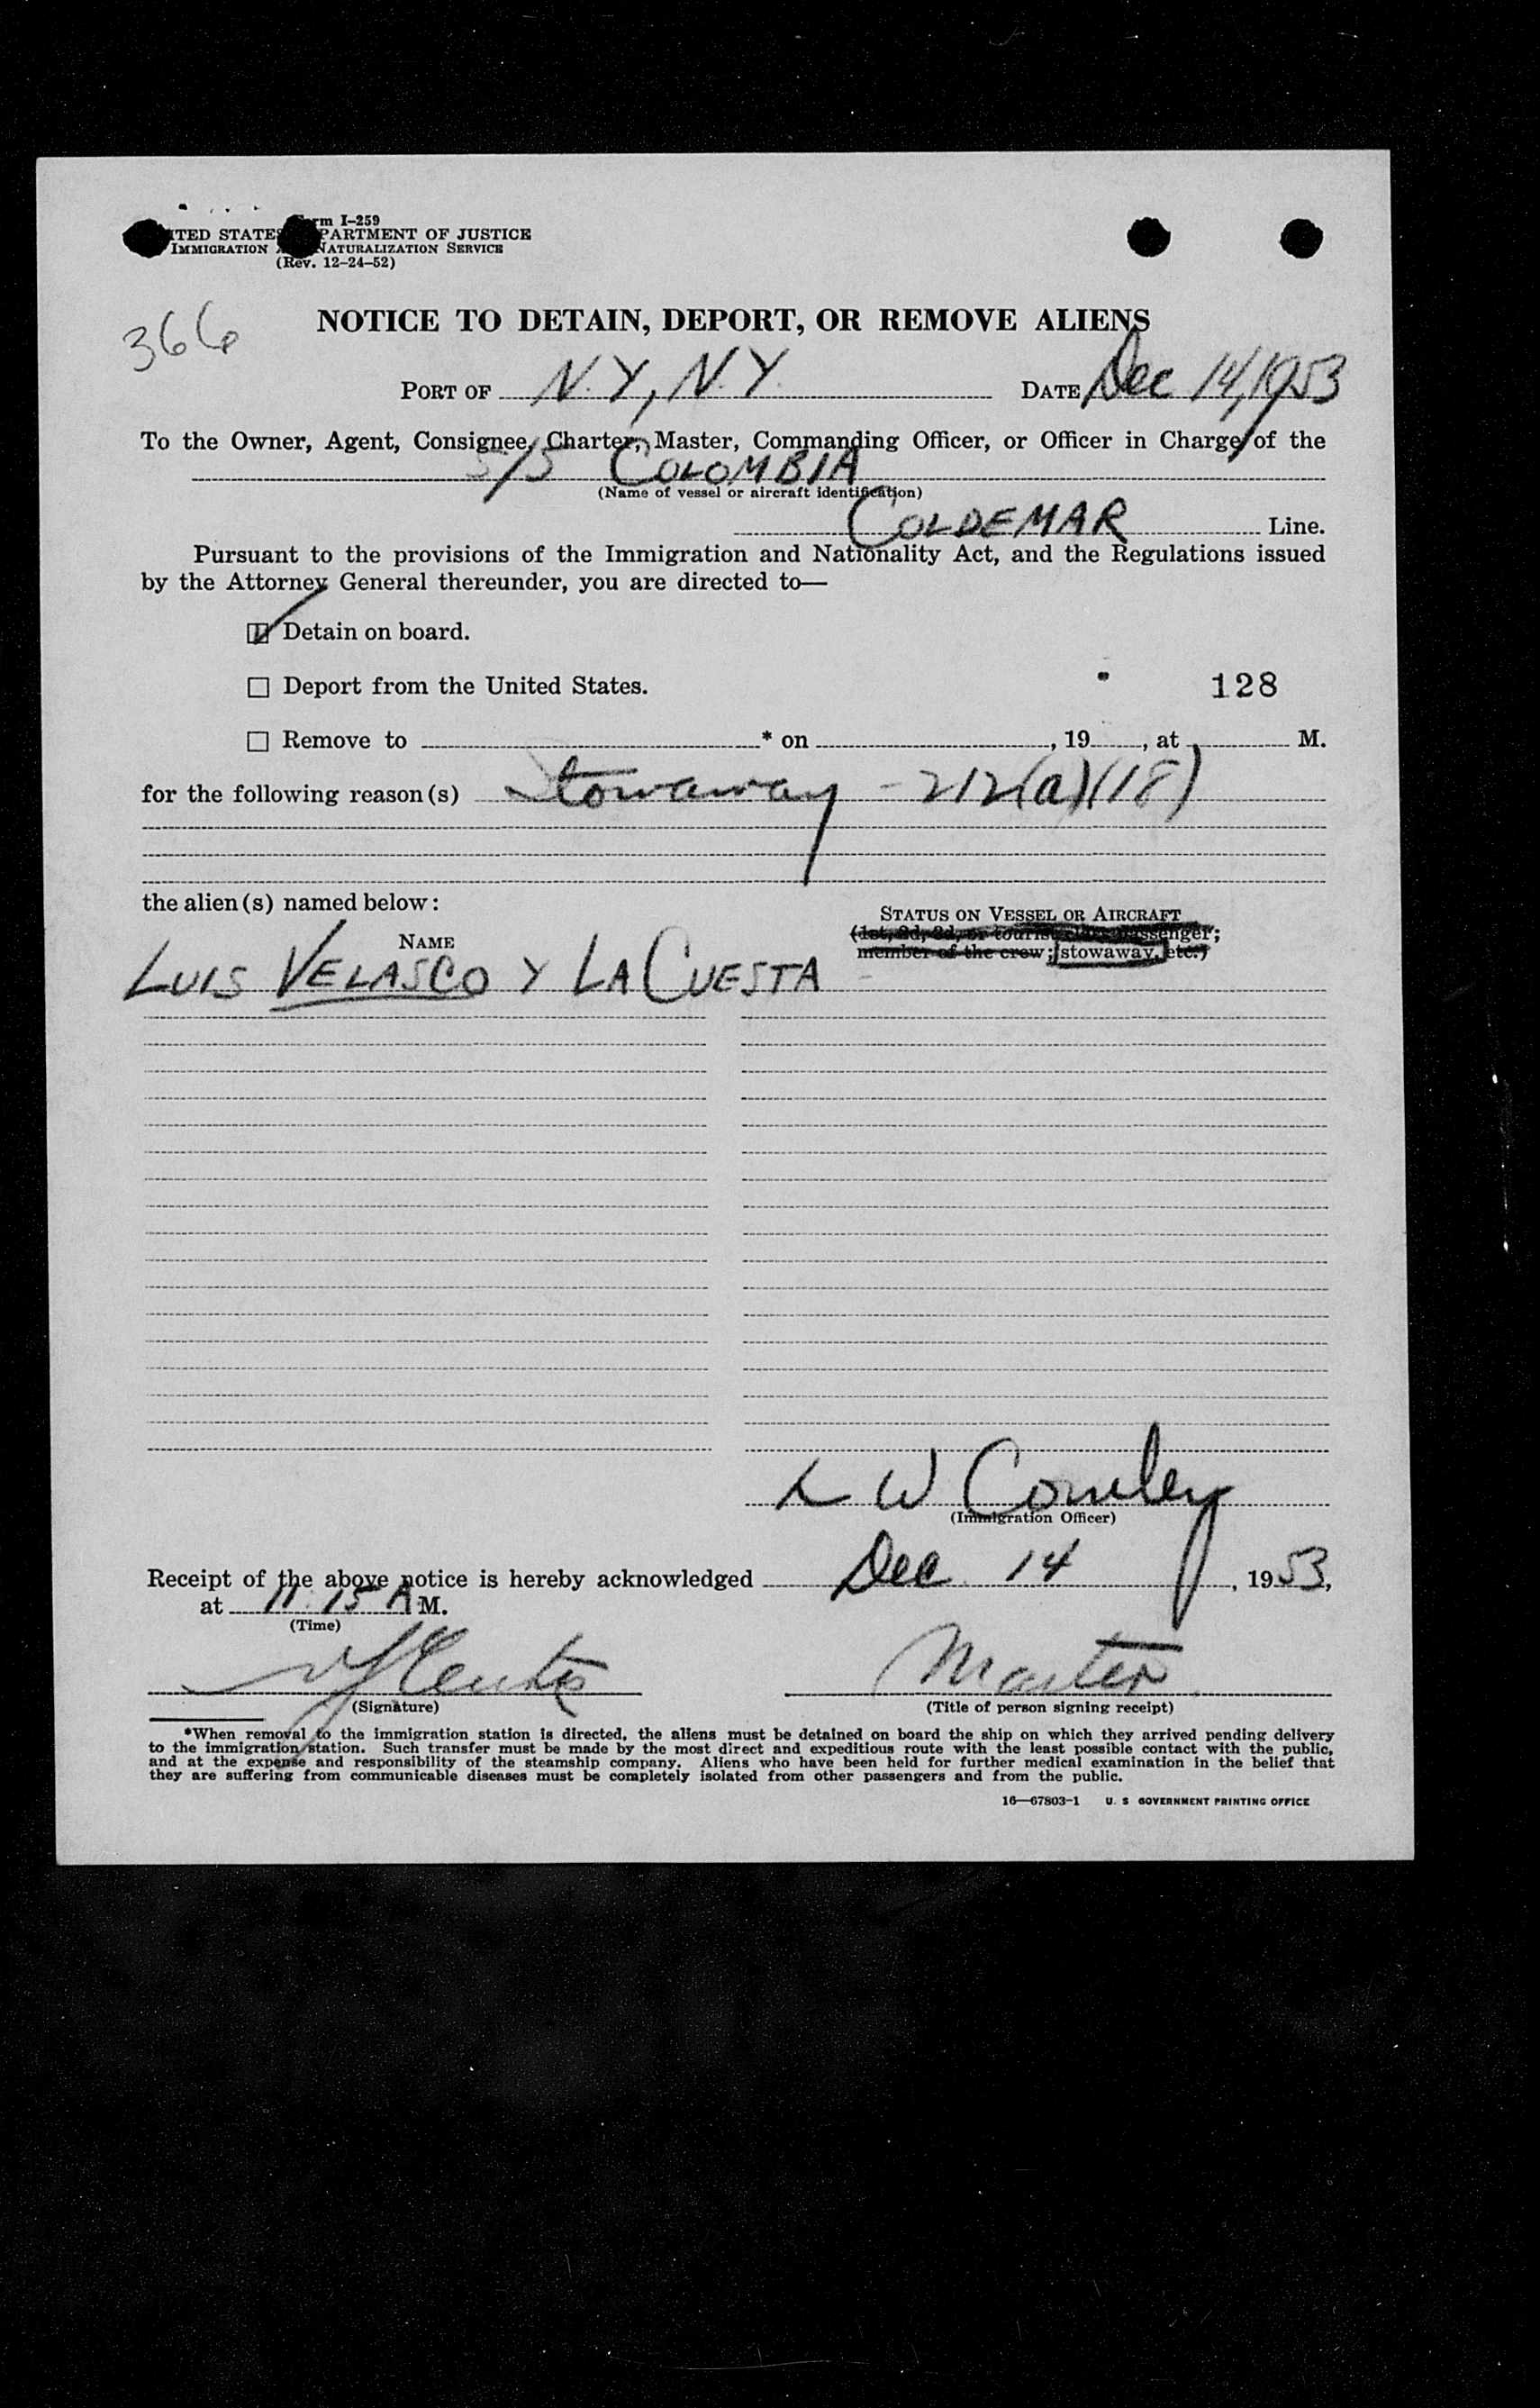 Form I-259
UNITED STATES DEPARTMENT OF JUSTICE
IMMIGRATION AND NATURALIZATION SERVICE
(Rev. 12-24-52)
366
NOTICE TO DETAIN, DEPORT, OR REMOVE ALIENS
PORT OF N.Y, N.Y. DATE Dec 14, 1953
To the Owner, Agent, Consignee, Charter, Master, Commanding Officer, or Officer in Charge of the
S/S COLOMBIA
(Name of vessel or aircraft identification)
COLDEMAR Line.
Pursuant to the provisions of the Immigration and Nationality Act, and the Regulations issued
by the Attorney General thereunder, you are directed to—
Detain on board.
Deport from the United States. 128
Remove to * on , 19 , at M.
for the following reason(s) Stowaway - 212(a)(18)
the alien(s) named below:
STATUS ON VESSEL OR AIRCRAFT
NAME (1st, 2d, 3d, or tourist class passenger;
member of the crew; stowaway, etc.)
LUIS VELASCO Y LA CUESTA
L W Cowley
(Immigration Officer)
Receipt of the above notice is hereby acknowledged Dec. 14, 1953,
at 11:15 A M.
(Time)
Master
(Signature) (Title of person signing receipt)
*When removal to the immigration station is directed, the aliens must be detained on board the ship on which they arrived pending delivery
to the immigration station. Such transfer must be made by the most direct and expeditious route with the least possible contact with the public,
and at the expense and responsibility of the steamship company. Aliens who have been held for further medical examination in the belief that
they are suffering from communicable diseases must be completely isolated from other passengers and from the public.
16—67803-1 U. S GOVERNMENT PRINTING OFFICE